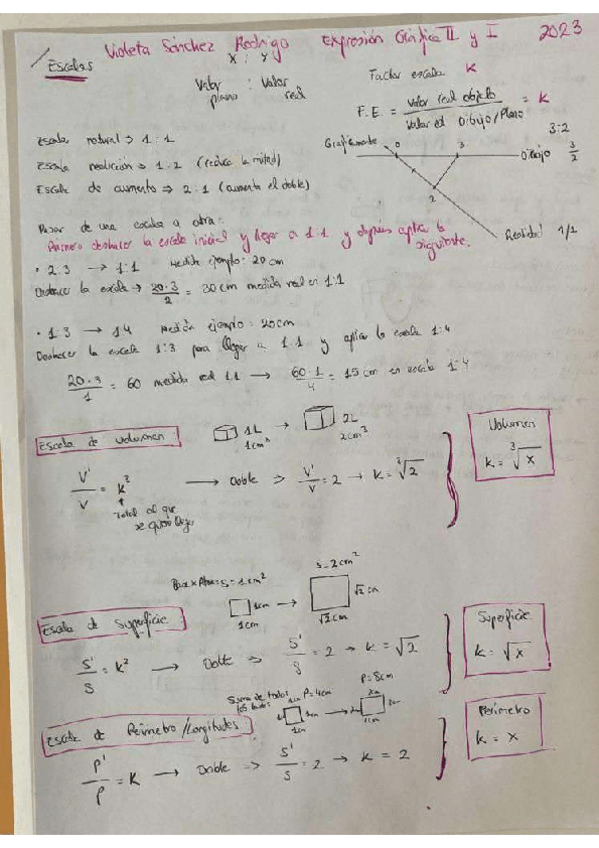 Violeta Sánchez Rodrigo Expresión Gráfica II y I 2023
Escalas
X : Y
Valor plano : Valor real
Factor escala K
F.E. = Valor real objeto / Valor el Dibujo/Plano = K
Escala natural => 1:1
Escala reducción => 1:2 (reduce la mitad)
Escala de aumento => 2:1 (aumenta el doble)
Graficamente 0 3 Dibujo 3/2
3:2
2
Realidad 1/1
Pasar de una escala a otra:
Primero deshacer la escala inicial y llegar a 1:1 y después aplica la siguiente.
• 2:3 → 1:1 Medida ejemplo: 20 cm
Deshacer la escala → 20·3/2 = 30 cm medida real en 1:1
• 1:3 → 1:4 Medida ejemplo: 20cm
Deshacer la escala 1:3 para llegar a 1:1 y aplicar la escala 1:4
20·3/1 = 60 medida real 1:1 → 60·1/4 = 15 cm en escala 1:4
Escala de volumen:
1L 1cm³ → 2L 2cm³
V'/V = k² → Doble => V'/V = 2 → k = ³√2
Total al que se quiere llegar
Volumen
k = ³√x
Base x Altura = S = 1cm²
1cm
1cm
S=2cm²
√2 cm
√2 cm
Escala de Superficie
S'/S = k² → Doble => S'/S = 2 → k = √2
Superficie
k = √x
Suma de todos los lados
P=4cm
P=8cm
Escala de Perímetro/Longitudes
P'/P = K → Doble => S'/S = 2 → k = 2
Perímetro
k = x